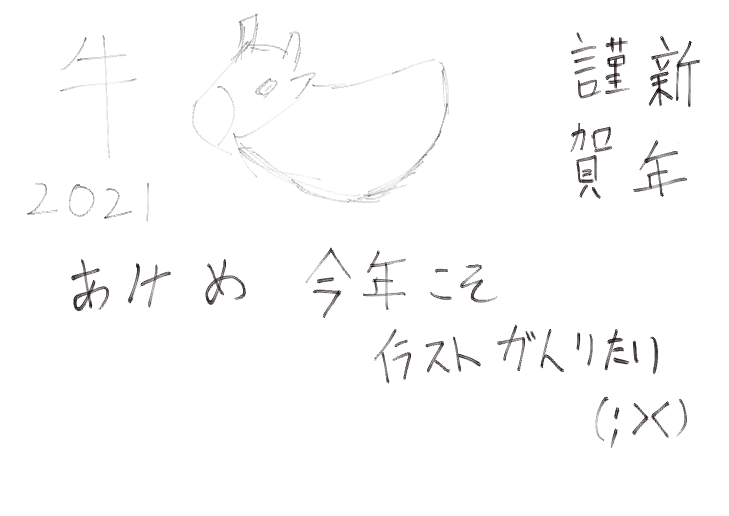 牛
2021
謹新
賀年
あけ め 今年こそ
イラスト がんりたい
(;><)